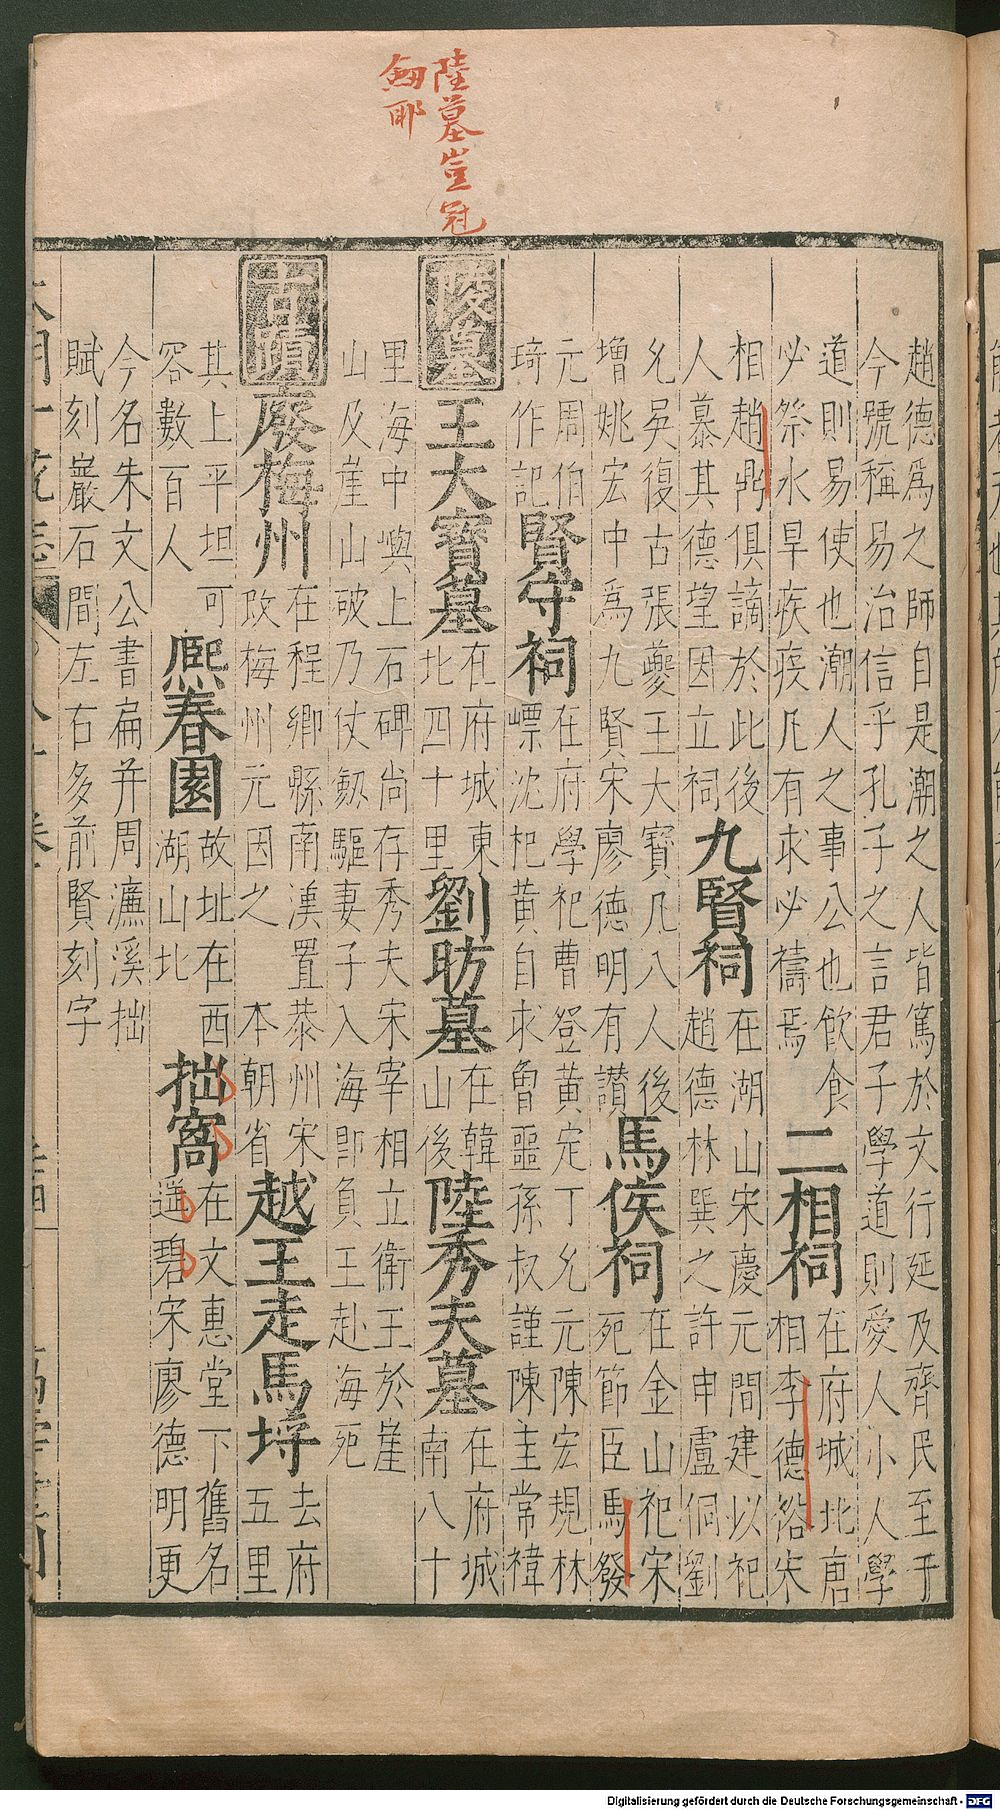 陸墓豈冠
劔耶
趙德爲之師自是潮之人皆篤於文行延及齊民至于
今號稱易治信乎孔子之言君子學道則愛人小人學
道則易使也潮人之事公也飲食
必祭水旱疾疫凡有求必禱焉
二相祠
在府城北唐
相李德裕宋
相趙鼎俱謫於此後
人慕其德望因立祠
九賢祠
在湖山宋慶元間建以祀
趙德林巽之許申盧侗劉
允吳復古張夔王大寶凡八人後
增姚宏中爲九賢宋廖德明有讃
馬侯祠
在金山祀宋
死節臣馬發
元周伯
琦作記
賢守祠
在府學祀曹登黄定丁允元陳宏規林
嶫沈杞黄自求魯噩孫叔謹陳圭常褘
陵墓
王大寶墓
在府城東
北四十里
劉昉墓
在韓
山後
陸秀夫墓
在府城
南八十
里海中嶼上石碑尚存秀夫宋宰相立衛王於崖
山及崖山破乃仗劔驅妻子入海即負王赴海死
古蹟
廢梅州
在程鄉縣南漢置恭州宋
改梅州元因之 本朝省
越王走馬埒
去府
五里
其上平坦可
容數百人
熈春園
故址在西
湖山北
拙窩
在文惠堂下舊名
遥碧宋廖德明更
今名朱文公書扁并周濂溪拙
賦刻巖石間左右多前賢刻字
Digitalisierung gefördert durch die Deutsche Forschungsgemeinschaft - DFG